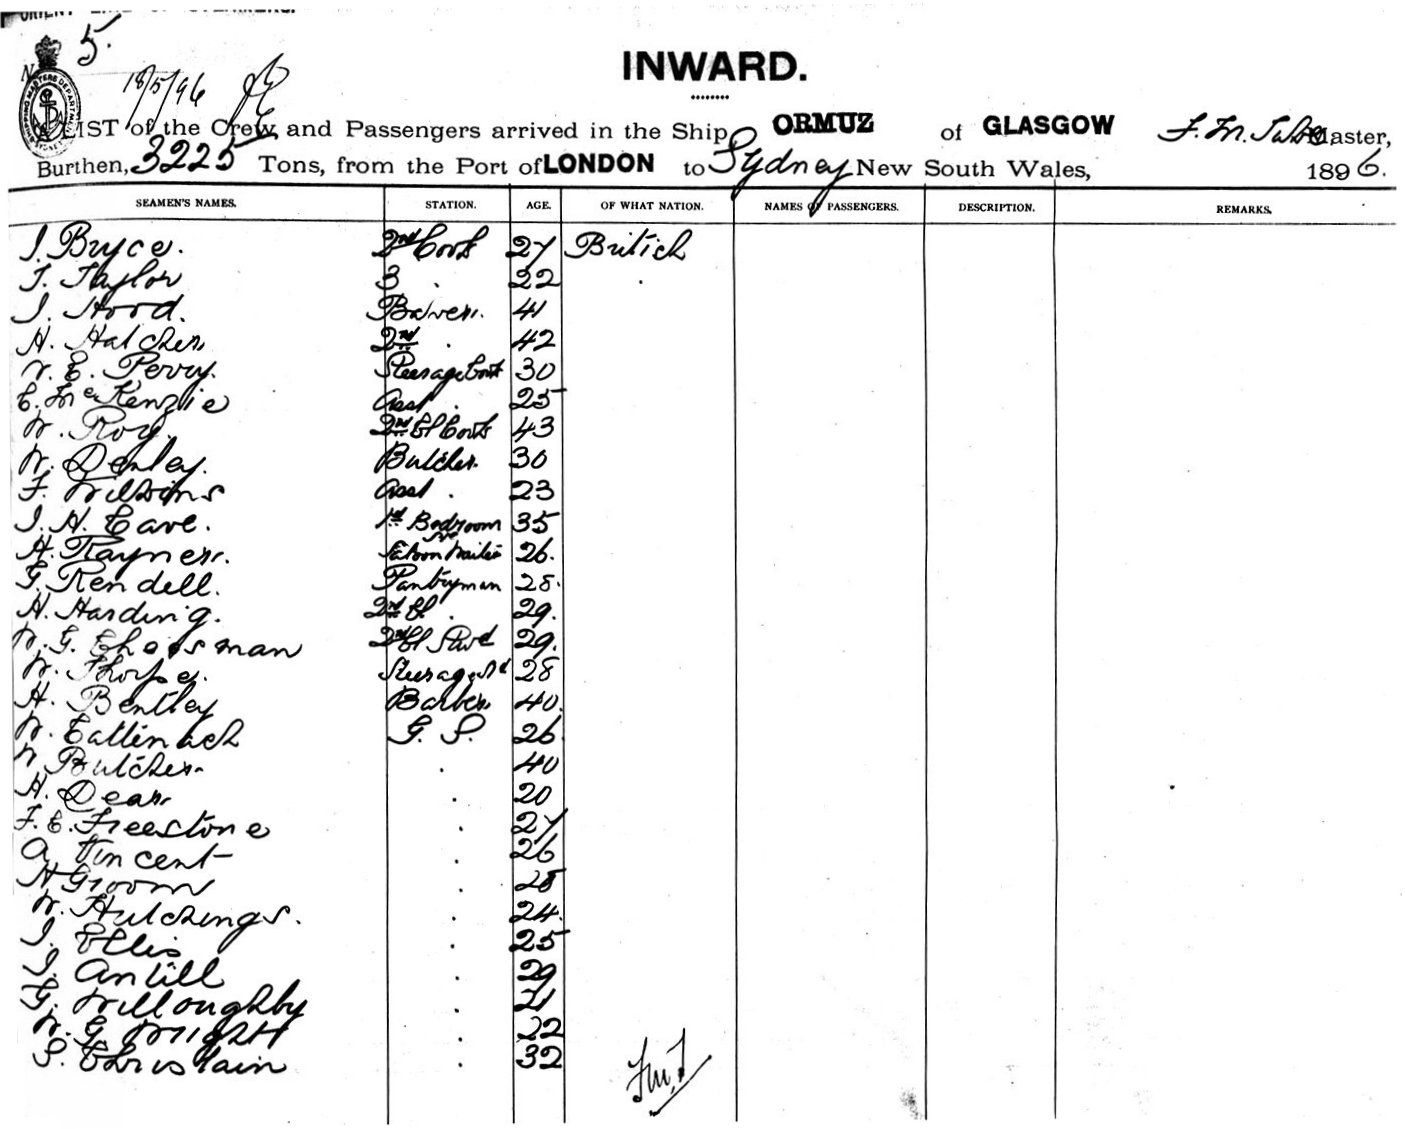 ORIENT LINE OF STEAMERS.
5.
18/5/96
INWARD.
LIST of the Crew and Passengers arrived in the Ship ORMUZ of GLASGOW F. M. Master,
Burthen, 3225 Tons, from the Port of LONDON to Sydney New South Wales, 1896.
SEAMEN'S NAMES. STATION. AGE. OF WHAT NATION. NAMES OF PASSENGERS. DESCRIPTION. REMARKS.
J. Bryce. 2nd Cook 27 British
T. Taylor 3 . 22 .
J. Hood. 41
H. Hatcher 2nd . 42
W. E. Perry. Steerage Cook 30
C. McKenzie Asst . 25
W. Roy. 2nd Cl Cook 43
W. Denley. Butcher. 30
F. Wilkins Asst . 23
J. H. Cave. 1st Bedroom 35
H. Rayner. Saloon Waiter 26.
G. Kendell. Pantryman 28.
H. Harding. 2nd Cl . 29.
W. G. Cheesman 2nd Cl Stwd 29.
W. Thorpe. Steerage Sd 28
H. Bentley Barber 40.
W. Cattenach G. S. 26
W Butcher . 40
H. Dear . 20
F. E. Freestone . 27
A Vincent . 26
H Groom . 28
W. Hutchings. . 24.
J. Ellis . 25
J. Antill . 29
G. Willoughby . 21
W. G Wright . 22
S. Christain . 32
FMT